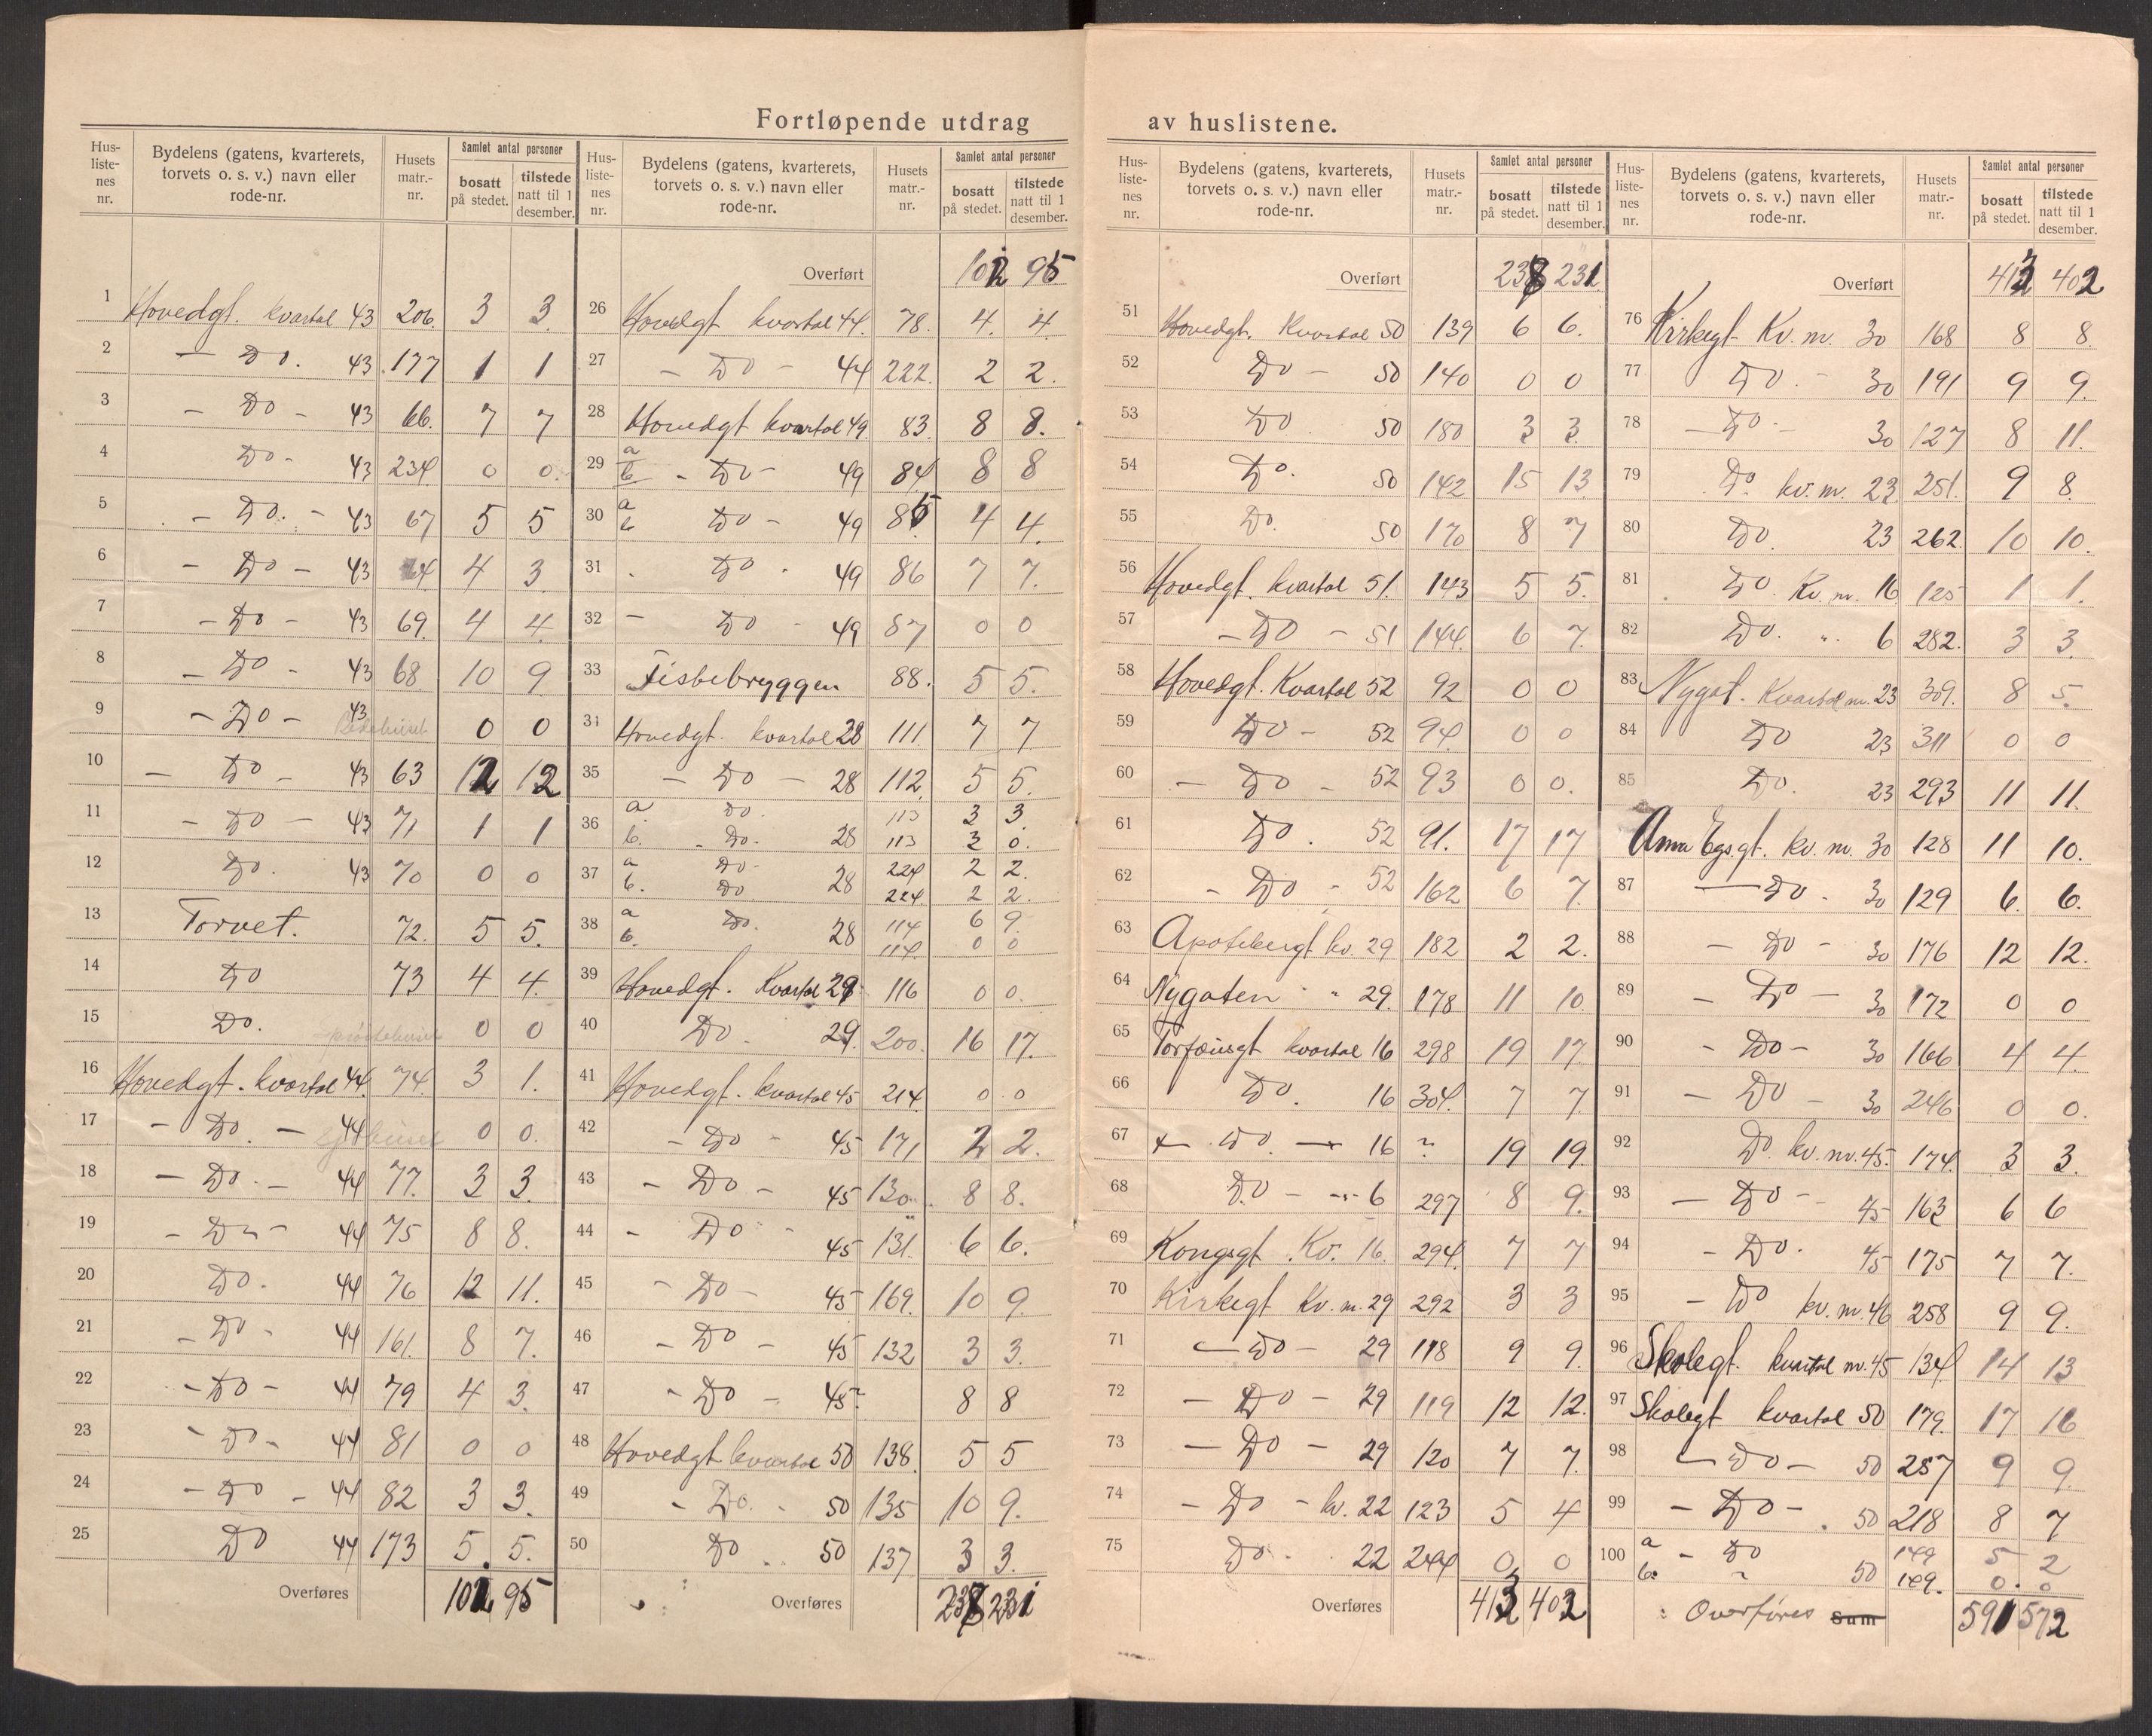 Fortløpende utdrag av huslistene.
Hus-liste-nes nr. Bydelens (gatens, kvarterets, torvets o. s. v.) navn eller rode-nr. Husets matr.-nr. Samlet antal personer bosatt på stedet. tilstede natt til 1 desember.
1 Hovedgt. kvartal 43 206 3 3
2 — Do. 43 177 1 1
3 — Do — 43 66 7 7
4 Do - 43 234 0 0
5 — Do. — 43 67 5 5
6 — Do — 43 4 3
7 — Do — 43 69 4 4
8 — Do - 43 68 10 9
9 — Do — 43 0 0
10 — Do — 43 63 12 12
11 — Do — 43 71 1 1
12 Do. 43 70 0 0
13 Torvet. 72 5 5
14 Do 73 4 4
15 Do. 0 0
16 Hovedgt. kvartal 44 74 3 1
17 — Do. — 44 0 0
18 — Do. — 44 77 3 3
19 — Do — 44 75 8 8
20 Do. 44 76 12 11
21 — Do - 44 161 8 7
22 — Do — 44 79 4 3
23 - Do - 44 81 0 0
24 — Do - 44 82 3 3
25 Do 44 173 5 5
Overføres 102 95
Hus-liste-nes nr. Bydelens (gatens, kvarterets, torvets o. s. v.) navn eller rode-nr. Husets matr.-nr. Samlet antal personer bosatt på stedet. tilstede natt til 1 desember.
Overført 102 95
26 Hovedgt kvartal 44 78 4 4
27 — Do — 44 222 2 2
28 Hovedgt kvartal 49 83 8 8
29 a b - Do - 49 84 8 8
30 a b Do - 49 85 4 4
31 Do 49 86 7 7
32 — Do - 49 87 0 0
33 Fiskebryggen 88 5 5
34 Hovedgt. kvartal 28 111 7 7
35 — Do — 28 112 5 5
36 a Do. 113 3 3
b. - Do. 28 113 3 0
37 a Do - 224 2 2
b. Do 28 224 2 2
38 a Do. 114 6 9
b. 28 114 0 0
39 Hovedgt. Kvartal 29 116 0 0
40 Do 29 200 16 17
41 Hovedgt. kvartal 45 214 0 0
42 — Do - 45 171 2 2
43 — Do — 45 130 8 8
44 - Do - 45 131 6 6
45 - Do - 45 169 10 9
46 — Do — 45 132 3 3
47 - Do — 45 8 8
48 Hovedgt kvartal 50 138 5 5
49 - Do. - 50 135 10 9
50 Do 50 137 3 3
Overføres 238 231
Hus-liste-nes nr. Bydelens (gatens, kvarterets, torvets o. s. v.) navn eller rode-nr. Husets matr.-nr. Samlet antal personer bosatt på stedet. tilstede natt til 1 desember.
Overført 238 231
51 Hovedgt. Kvartal 50 139 6 6
52 Do — 50 140 0 0
53 Do 50 180 3 3
54 Do. 50 142 15 13
55 Do. 50 170 8 7
56 Hovedgt. kvartal 51 143 5 5
57 — Do — 51 144 6 7
58 Hovedgt. Kvartal 52 92 0 0
59 Do — 52 94 0 0
60 — Do - 52 93 0 0
61 Do. 52 91 17 17
62 - Do - 52 162 6 7
63 Apotekergt kv. 29 182 2 2
64 Nygaten " " 29 178 11 10
65 Torfæusgt kvartal 16 298 19 17
66 Do. 16 304 7 7
67 Do. — 16 ? 19 19
68 Do — 6 297 8 9
69 Kongsgt. Kv. 16 294 7 7
70 Kirkegt Kv. nr. 29 292 3 3
71 — Do — 29 118 9 9
72 — Do — 29 119 12 12
73 — Do — 29 120 7 7
74 — Do - kv. 22 123 5 4
75 Do - 22 244 0 0
Overføres 413 402
Hus-liste-nes nr. Bydelens (gatens, kvarterets, torvets o. s. v.) navn eller rode-nr. Husets matr.-nr. Samlet antal personer bosatt på stedet. tilstede natt til 1 desember.
Overført 413 402
76 Kirkegt Kv. nr. 30 168 8 8
77 Do. - 30 191 9 9
78 — Do - 30 127 8 11
79 Do. kv. nr. 23 251 9 8
80 Do. 23 262 10 10
81 Do. Kv. nr. 16 125 1 1
82 Do. " 6 282 3 3
83 Nygat. Kvartal nr. 23 309 8 5
84 Do 23 311 0 0
85 Do. 23 293 11 11
kv. nr. 30 128 11 10
87 — Do. 30 129 6 6
88 — Do - 30 176 12 12
89 - Do — 30 172 0 0
90 - Do — 30 166 4 4
91 — Do — 30 246 0 0
92 Do. kv. nr. 45 174 3 3
93 — Do - 45 163 6 6
94 - Do. 45 175 7 7
95 - Do kv. nr. 46 258 9 9
96 Skolegt. kvartal nr. 45 134 14 13
97 Skolegt kvartal 50 179 17 16
98 — Do — 50 257 9 9
99 — Do — 50 218 8 7
100 a - Do 149 5 2
b. " 50 149 0 0
Overføres Sum 591 572